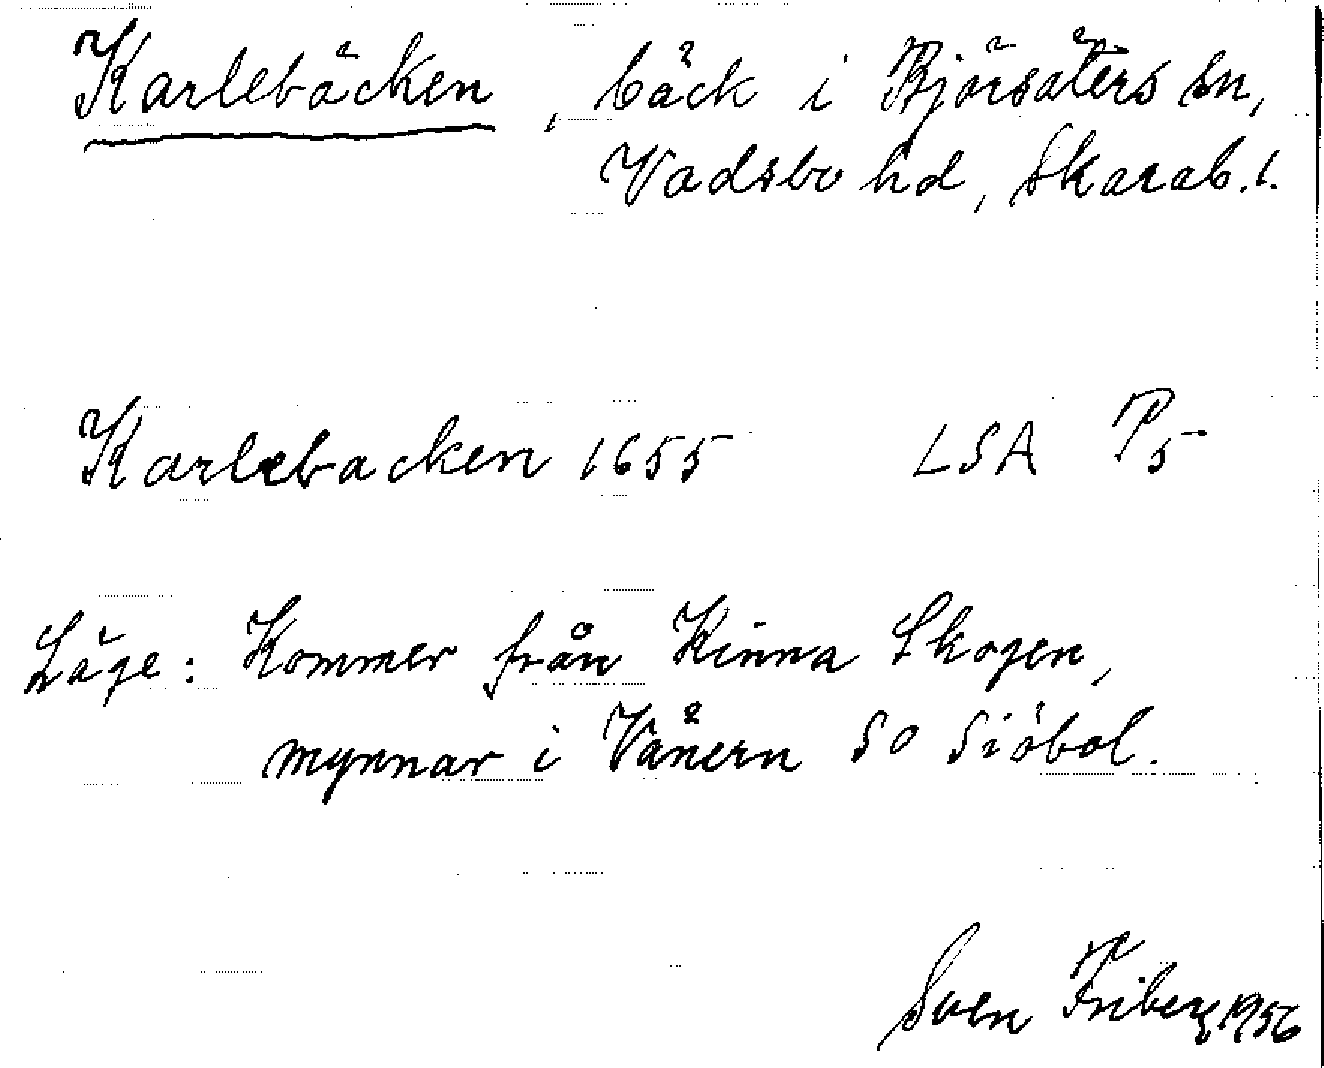 Karlebäcken, bäck i Björsäters sn,
Vadsbo hd, Skarab. l.
Karlebacken 1655 LSA P5
Läge: Kommer från Kinna Skogen,
mynnar i Vänern SO Siöbol.
Sven Friberg 1956